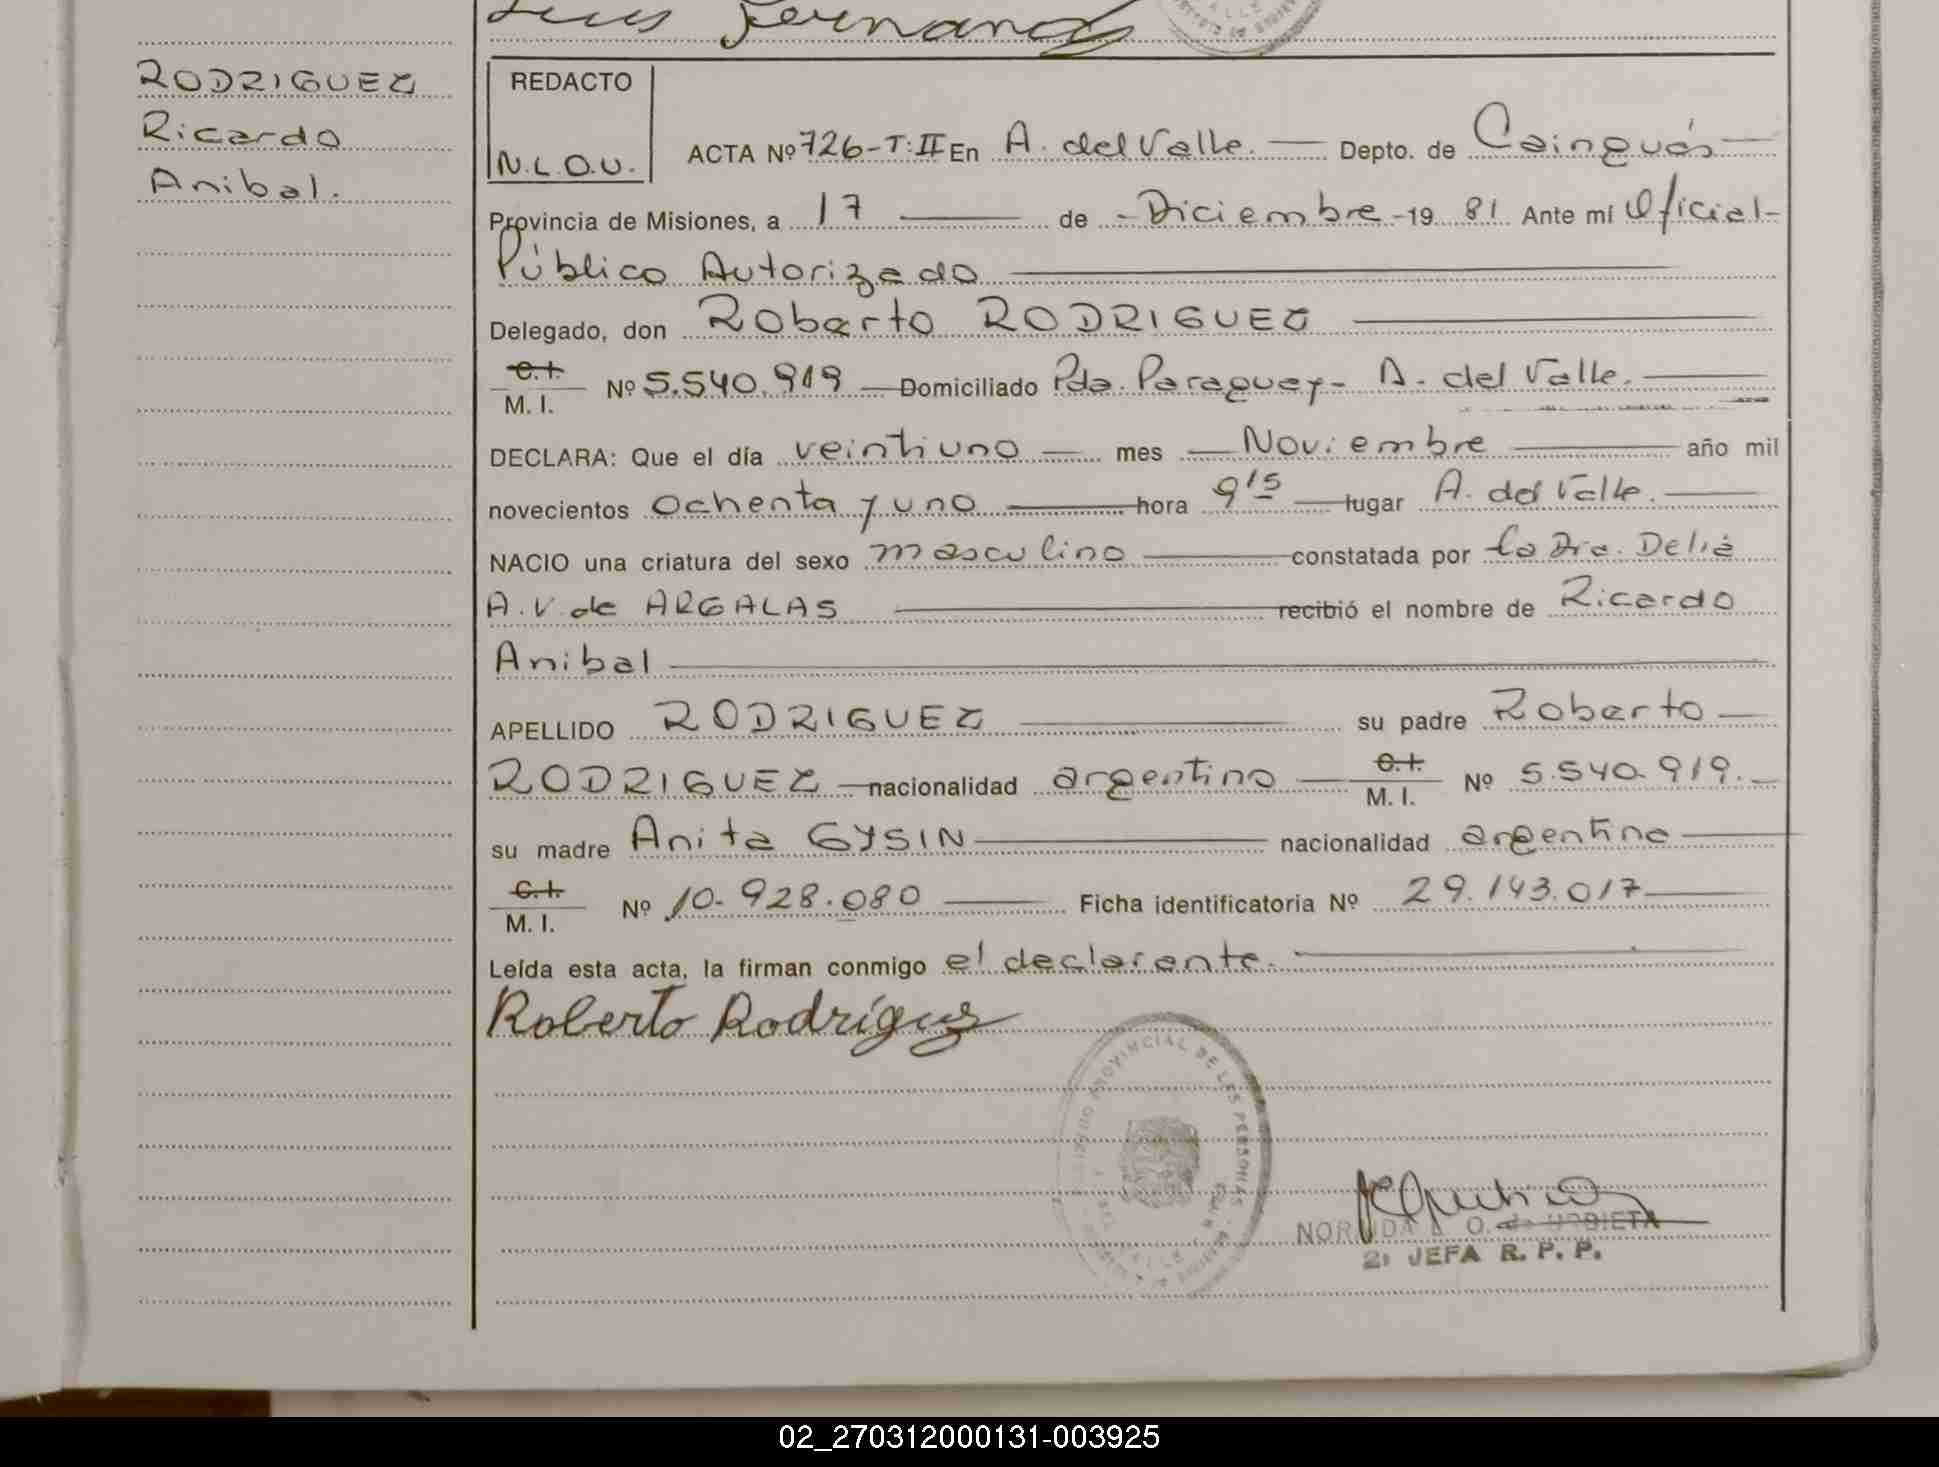 Luis Fernando
RODRIGUEZ
Ricardo
Anibal.
REDACTO
N.L.O.U.
ACTA Nº 726-T:II En A. del Valle. Depto. de Cainguás
Provincia de Misiones, a 17 de Diciembre 19 81 Ante mí Oficial
Público Autorizado
Delegado, don Roberto RODRIGUEZ
C.I.
M. I. Nº 5.540.919 Domiciliado Pda. Paraguay - A. del Valle.
DECLARA: Que el día veintiuno mes Noviembre año mil
novecientos ochenta y uno hora 9 15 lugar A. del Valle.
NACIO una criatura del sexo masculino constatada por la Dra. Delia
A. V. de ARGALAS recibió el nombre de Ricardo
Anibal
APELLIDO RODRIGUEZ su padre Roberto
RODRIGUEZ nacionalidad argentino C.I. M. I. Nº 5.540.919.
su madre Anita GYSIN nacionalidad argentina
C.I.
M. I. Nº 10.928.080 Ficha identificatoria Nº 29.143.017
Leída esta acta, la firman conmigo el declarante.
Roberto Rodríguez
PROVINCIAL DE LAS PERSONAS
O. de URBIETA
2ª JEFA R. P. P.
02_270312000131-003925